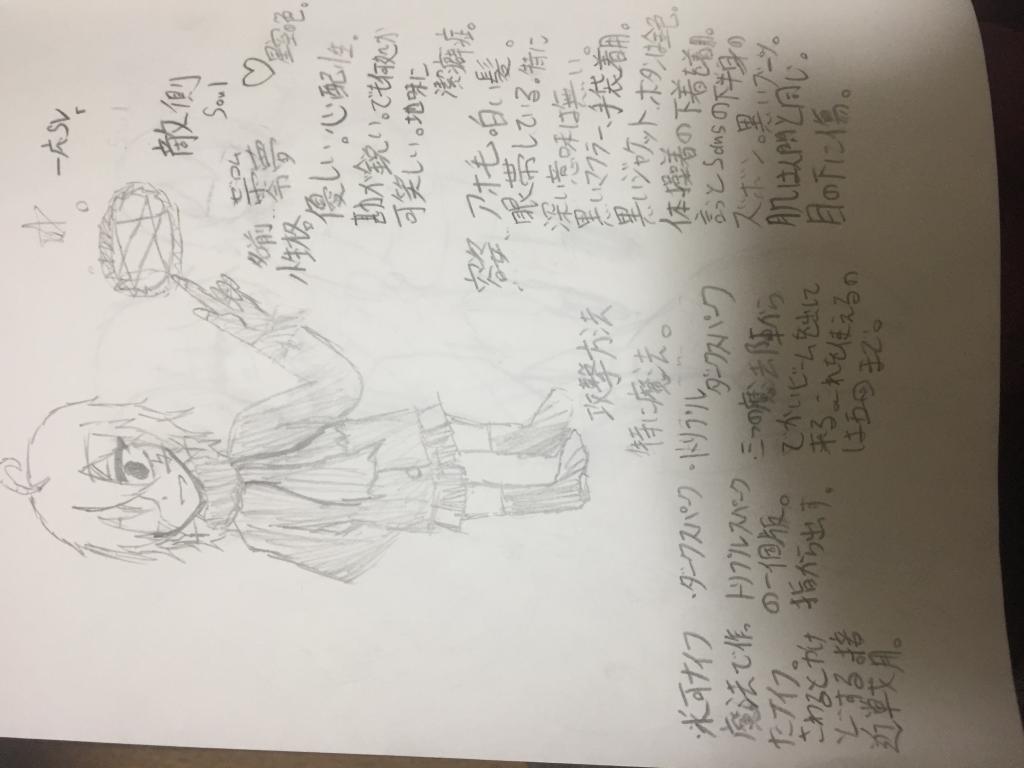 敵側
Soul
♡黒色。
名前
性格。
優しい。心配性。
勘が鋭い。でも何処か
可笑しい。地味に
潔癖症。
容姿、
アホ毛。白い髪。
眼帯している。特に
深い意味は無い。
黒いマフラー、手袋着用。
黒いジャケット、ボタンは金色。
体操着の下着も着用。
Sansの下半身の
ズボン。黒いブーツ。
肌は人間と同じ。
目の下に傷。
攻撃方法
特に魔法。
・トリプル
ダークスパーク
三つの魔法陣から
でかいビームを出して
来る。これを使えるの
は五回まで。
・ダークスパーク
トリプルスパーク
の一個版。
指から出す。
・氷河ナイフ
魔法で作っ
たナイフ。
さわるとかけ
近戦用。